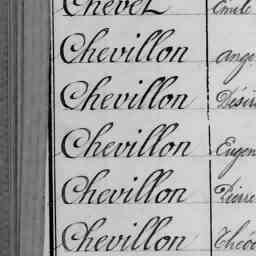 Chevet Émile
Chevillon Ange
Chevillon Désiré
Chevillon Eugen
Chevillon Pierre
Chevillon Théo